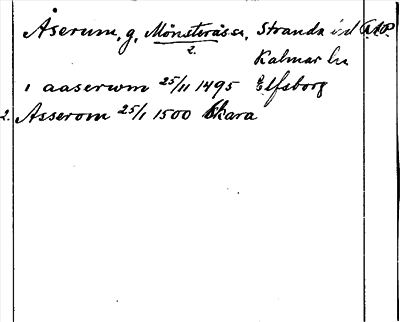 Åserum, g. Mönsterås sn, Stranda hd
2.
Kalmar län
1 aaserwm 25/11 1495 Elfsborg
2. Asserom 25/1 1500 Skara